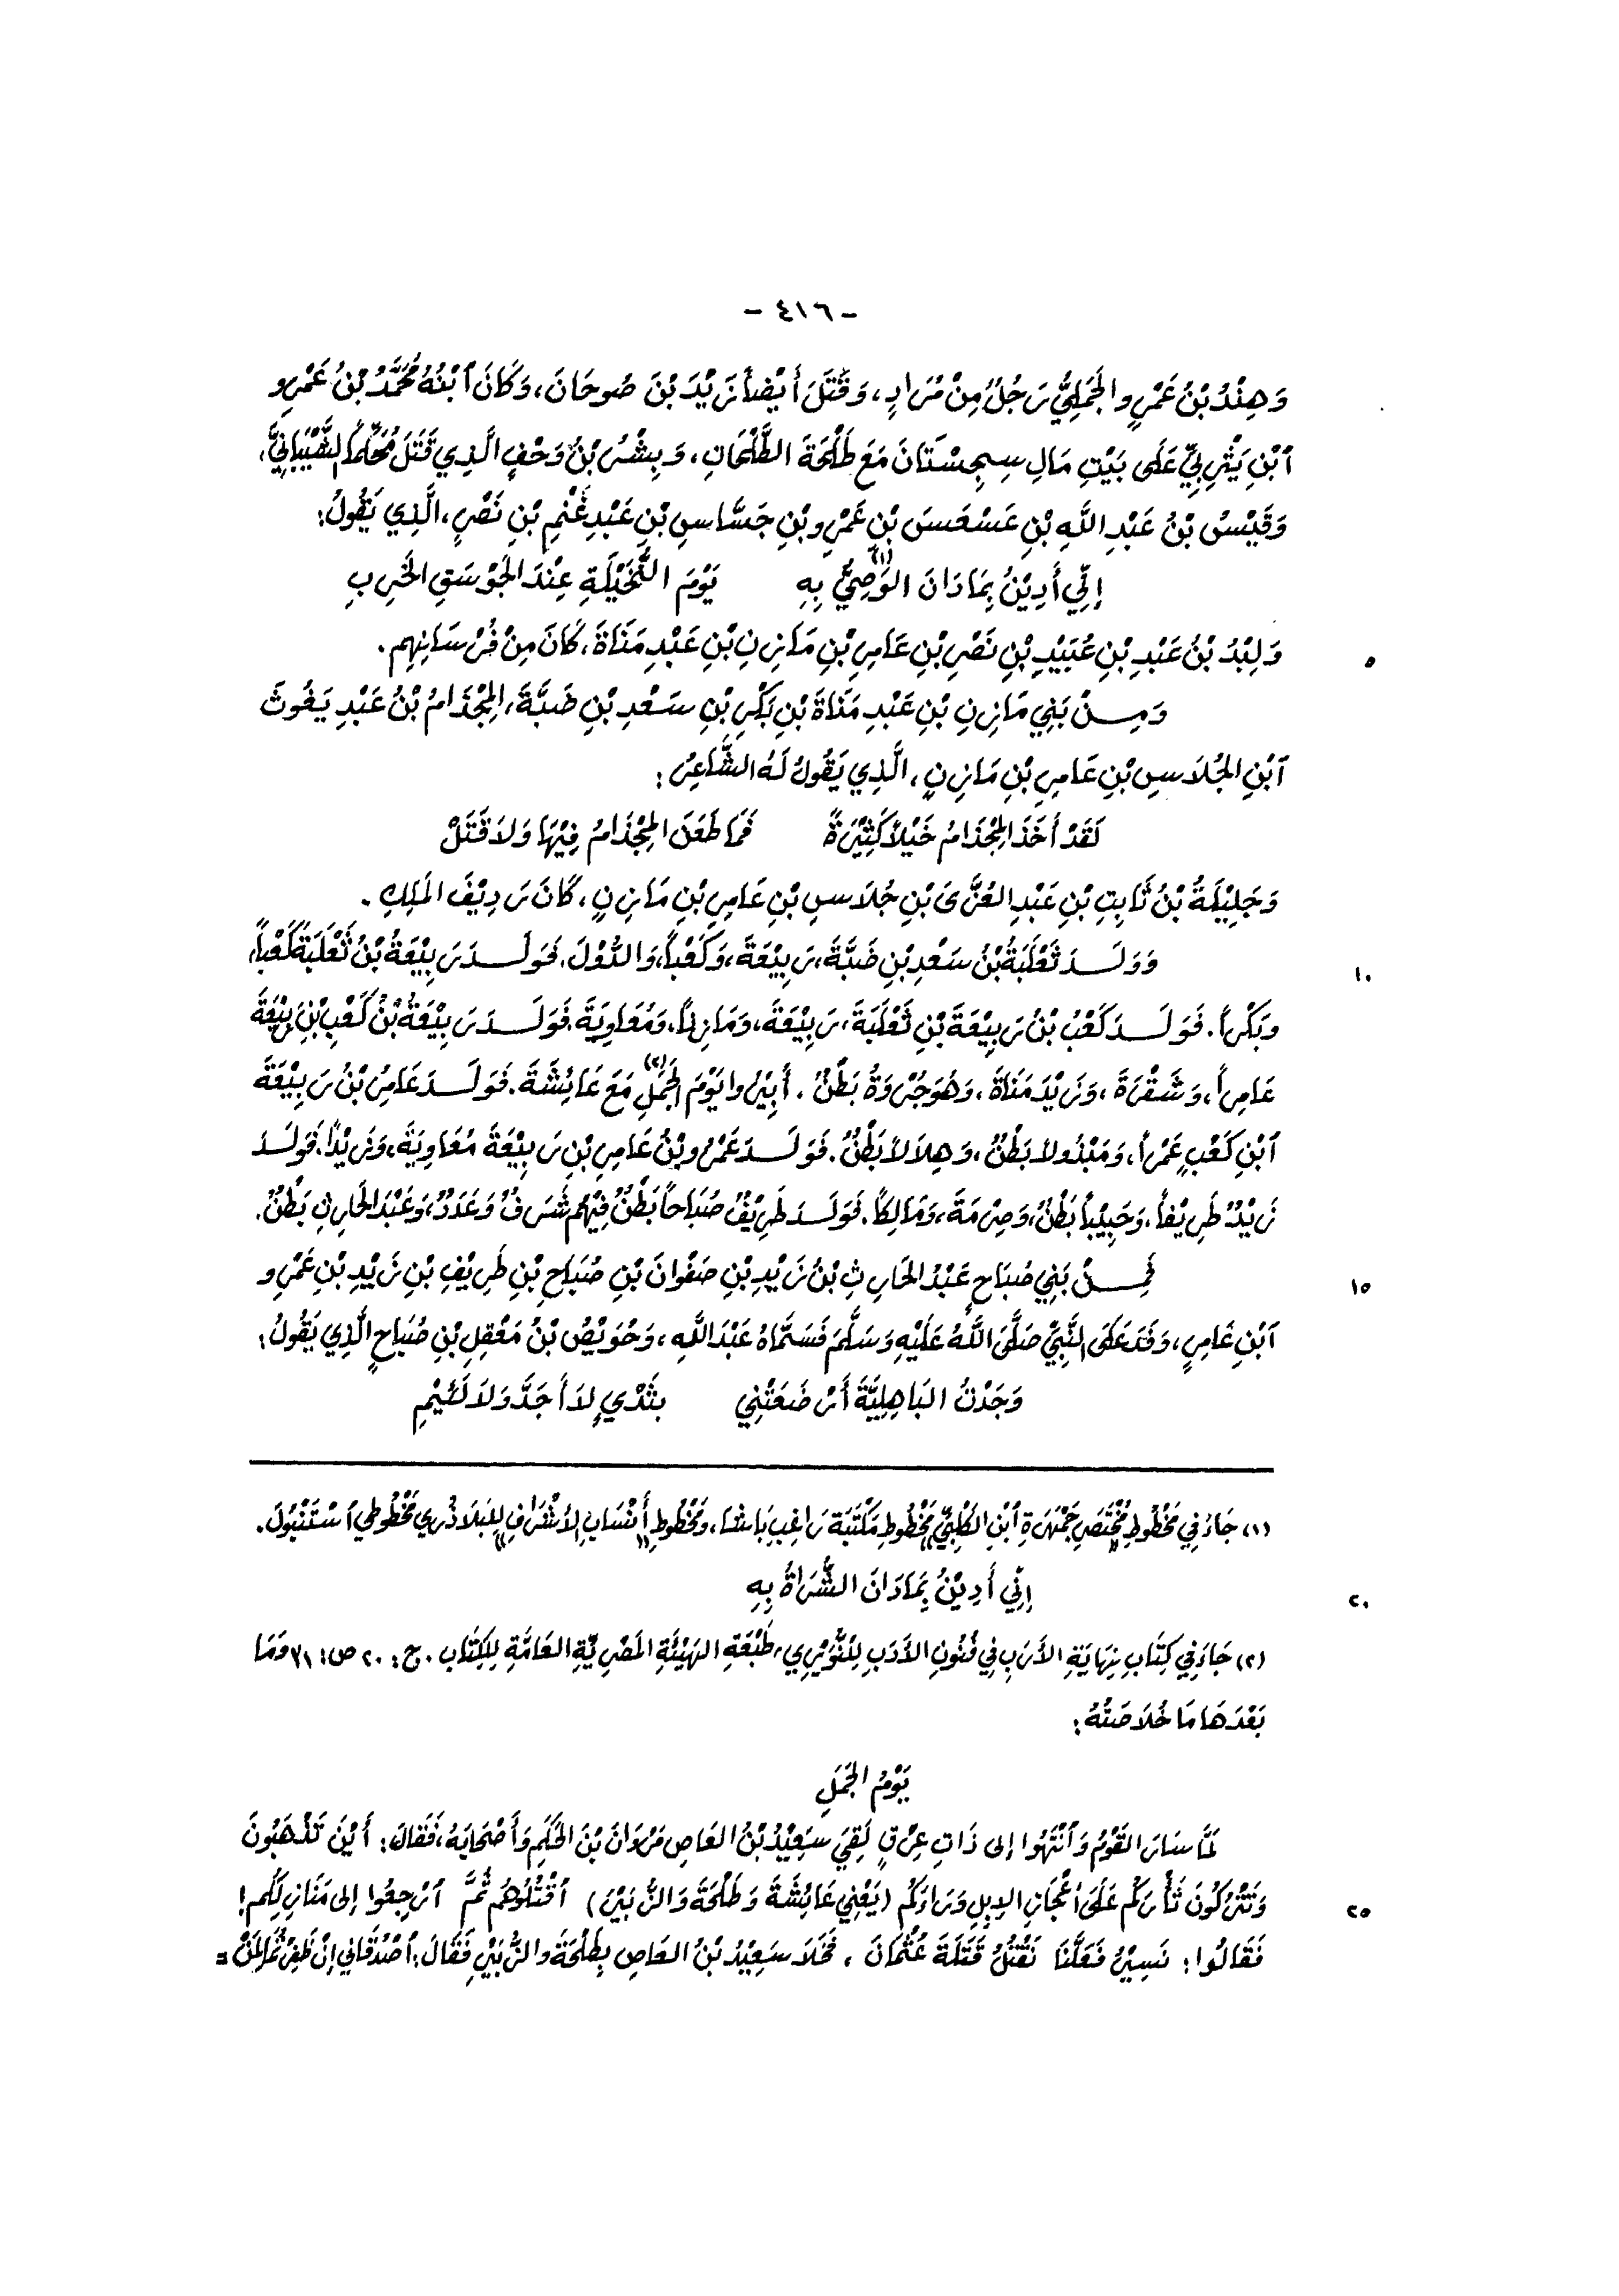 - ٤١٦ -
وَهِنْدُ بْنُ عَمْرٍو الجَمَلِيُّ رَجُلٌ مِنْ مُرَادٍ، وَقَتَلَ أَيْضاً زَيْدَ بْنَ صُوحَانَ، وَكَانَ ٱبْنُهُ مُحَمَّدُ بْنُ عَمْرِو
ٱبْنِ يَثْرِبِيٍّ عَلَى بَيْتِ مَالِ سِجِسْتَانَ مَعَ طَلْحَةَ الطَّلْحَاتِ، وَبِشْرُ بْنُ وَحْفٍ الَّذِي قَتَلَ مُحَلِّماً الشَّيْبَانِيَّ،
وَقَيْسُ بْنُ عَبْدِ اللَّهِ بْنِ عَسْعَسَ بْنِ عَمْرِو بْنِ جَسَّاسِ بْنِ عَبْدِ غَنْمِ بْنِ نَصْرٍ، الَّذِي يَقُولُ:
إِنِّي أَدِيْنُ بِمَا دَانَ الوَصِيُّ بِهِ (١) يَوْمَ النُّخَيْلَةِ عِنْدَ الجَوْسَقِ الخَرِبِ
٥ وَلِبْدُ بْنُ عَبْدِ بْنِ عُبَيْدِ بْنِ نَصْرِ بْنِ عَامِرِ بْنِ مَازِنِ بْنِ عَبْدِ مَنَاةَ، كَانَ مِنْ فُرْسَانِهِم.
وَمِنْ بَنِي مَازِنِ بْنِ عَبْدِ مَنَاةَ بْنِ بَكْرِ بْنِ سَعْدِ بْنِ ضَبَّةَ، المِجْذَامُ بْنُ عَبْدِ يَغُوثَ
ٱبْنِ الجُلَاسِ بْنِ عَامِرِ بْنِ مَازِنٍ، الَّذِي يَقُولُ لَهُ الشَّاعِرُ:
لَقَدْ أَخَذَ المِجْذَامُ خَيْلاً كَثِيْرَةً فَمَا طَعَنَ المِجْذَامُ فِيْهَا وَلَا قَتَلْ
وَجَلِيْلَةُ بْنُ ثَابِتِ بْنِ عَبْدِ العُزَّى بْنِ جُلَاسِ بْنِ عَامِرِ بْنِ مَازِنٍ، كَانَ رَدِيْفَ المَلِكِ.
١٠ وَوَلَدَ ثَعْلَبَةُ بْنُ سَعْدِ بْنِ ضَبَّةَ، رَبِيْعَةَ، وَكَعْباً، وَالدُّوْلَ. فَوَلَدَ رَبِيْعَةُ بْنُ ثَعْلَبَةَ كَعْباً،
وبَكْراً. فَوَلَدَ كَعْبُ بْنُ رَبِيْعَةَ بْنِ ثَعْلَبَةَ، رَبِيْعَةَ، وَمَازِناً، وَمُعَاوِيَةَ. فَوَلَدَ رَبِيْعَةُ بْنُ كَعْبِ بْنِ رَبِيْعَةَ
عَامِراً، وَشَقْرَةَ، وَزَيْدَ مَنَاةَ، وَهُوَ جُرْوَةُ بَطْنٌ. أُبِيْرُوا يَوْمَ الجَمَلِ (٢) مَعَ عَائِشَةَ. فَوَلَدَ عَامِرُ بْنُ رَبِيْعَةَ
ٱبْنِ كَعْبٍ عَمْراً، وَمَبْذُولاً بَطْنٌ، وَهِلَالاً بَطْنٌ. فَوَلَدَ عَمْرُو بْنُ عَامِرِ بْنِ رَبِيْعَةَ مُعَاوِيَةَ، وَزَيْداً. فَوَلَدَ
زَيْدٌ طَرِيْفاً، وَحَبِيْباً بَطْنٌ، وَصِرْمَةَ، وَمَالِكاً. فَوَلَدَ طَرِيْفٌ صُبَاحاً بَطْنٌ فِيْهِم شَرَفٌ وَعَدَدٌ، وَعَبْدَ الحَارِثِ بَطْنٌ.
١٥ فَمِنْ بَنِي صُبَاحٍ عَبْدُ الحَارِثِ بْنُ زَيْدِ بْنِ صَفْوَانَ بْنِ صُبَاحِ بْنِ طَرِيْفِ بْنِ زَيْدِ بْنِ عَمْرِو
ٱبْنِ عَامِرٍ، وَفَدَ عَلَى النَّبِيِّ صَلَّى اللَّهُ عَلَيْهِ وَسَلَّمَ فَسَمَّاهُ عَبْدَ اللَّهِ، وَحُوَيْصُ بْنُ مَعْقِلِ بْنِ صُبَاحٍ الَّذِي يَقُولُ:
وَجَدْتُ البَاهِلِيَّةَ أَرْضَعَتْنِي بِثَدْيٍ لَا أَجَدَّ وَلَا لَئِيْمِ
(١) جَاءَ فِي مَخْطُوطِ مُخْتَصَرِ جَمْهَرَةِ ٱبْنِ الكَلْبِيِّ" مَخْطُوطِ مَكْتَبَةِ رَاغِبِ بَاشَا، وَمَخْطُوطِ "أَنْسَابِ الأَشْرَافِ" لِلبَلاذُرِي مَخْطُوطِ ٱسْتَنْبُولَ.
٢٠ إِنِّي أَدِيْنُ بِمَا دَانَ الشُّرَاةُ بِهِ
(٢) جَاءَ فِي كِتَابِ نِهَايَةِ الأَرَبِ فِي فُنُونِ الأَدَبِ لِلنُّوَيْرِي، طَبْعَةِ الهَيْئَةِ المَصْرِيَّةِ العَامَّةِ لِلكِتَابِ. ج: ٢٠ ص: ٣١ وَمَا
بَعْدَهَا مَا خُلَاصَتُهُ:
يَوْمُ الجَمَلِ
لَمَّا سَارَ القَوْمُ وَٱنْتَهُوا إلى ذَاتِ عِرْقٍ لَقِيَ سَعِيْدُ بْنُ العَاصِ مَرْوَانَ بْنَ الحَكَمِ وَأَصْحَابَهُ، فَقَالَ: أَيْنَ تَذْهَبُونَ
٢٥ وَتَتْرُكُونَ ثَأْرَكُم عَلَى أَعْجَازِ الإِبِلِ وَرَاءَكُم (يَعْنِي عَائِشَةَ وَطَلْحَةَ وَالزُّبَيْرَ) ٱقْتُلُوهُم ثُمَّ ٱرْجِعُوا إلى مَنَازِلِكُم!
فَقَالُوا: نَسِيْرُ فَعَلَّنَا نَقْتُلُ قَتَلَةَ عُثْمَانَ، فَخَلَا سَعِيْدُ بْنُ العَاصِ بِطَلْحَةَ والزُّبَيْرِ فَقَالَ: ٱصْدُقَانِي إِنْ ظَفِرْتُمَا لِمَنْ =